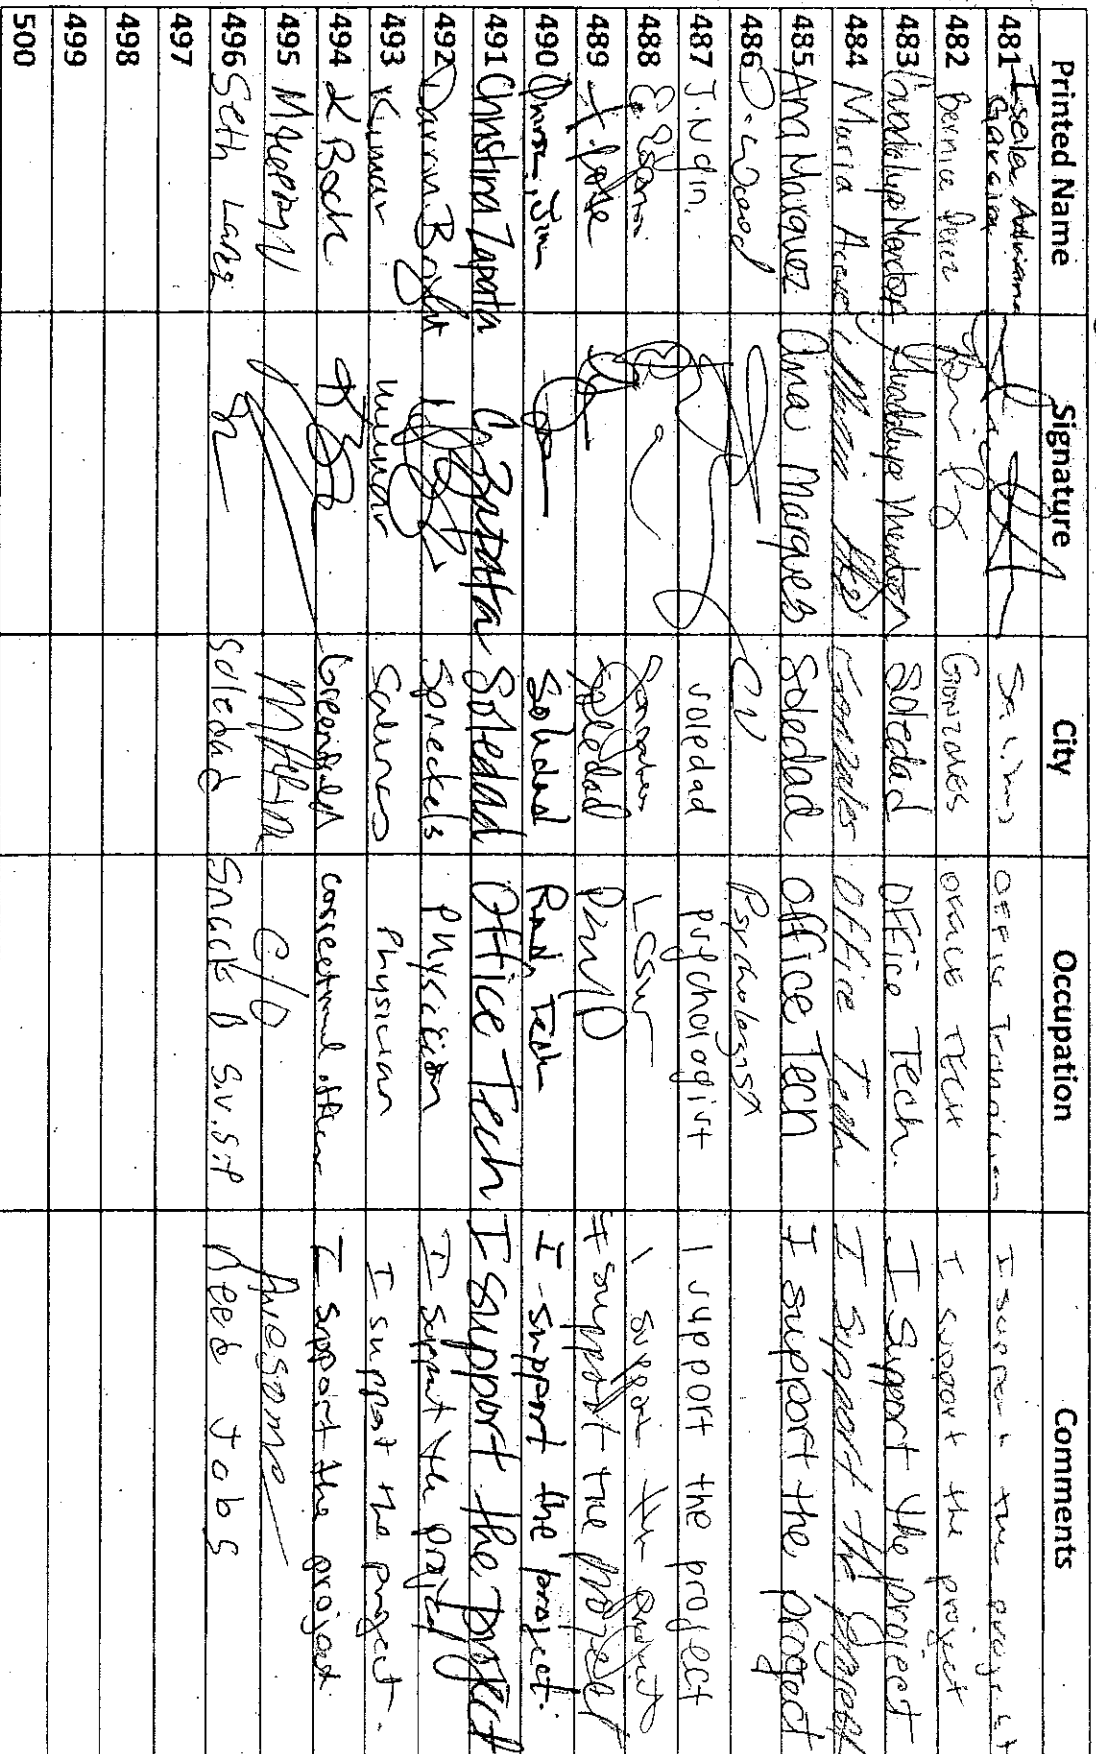 Printed Name Signature City Occupation Comments
481 Isela Adriana Garcia Office Technician I support the project
482 Bernice Perez Gonzales OFFICE TECH I support the project
483 Guadalupe Mendoza Guadalupe Mendoza Soledad OFFice Tech. I Support the project
484 Maria Gonzales Office Tech. I support the project
485 Ana Marquez Ana Marquez Soledad Office Tech I support the project
486 D. Wood Psychologist
487 J. Ngin. soledad psychologist I support the project
488 LCSW I support the project
489 Soledad I support the project
490 Jim Soledad Rad. Tech I support the project.
491 Christina Zapata C Zapata Soledad Office Tech I support the project
492 Darron Bright Spreckels Physician I support the project
493 Kumar Kumar Salinas Physician I support the project.
494 K Boch Greenfield correctional I support the project.
495 C/O Awesome
496 Seth soledad Need Jobs
497
498
499
500